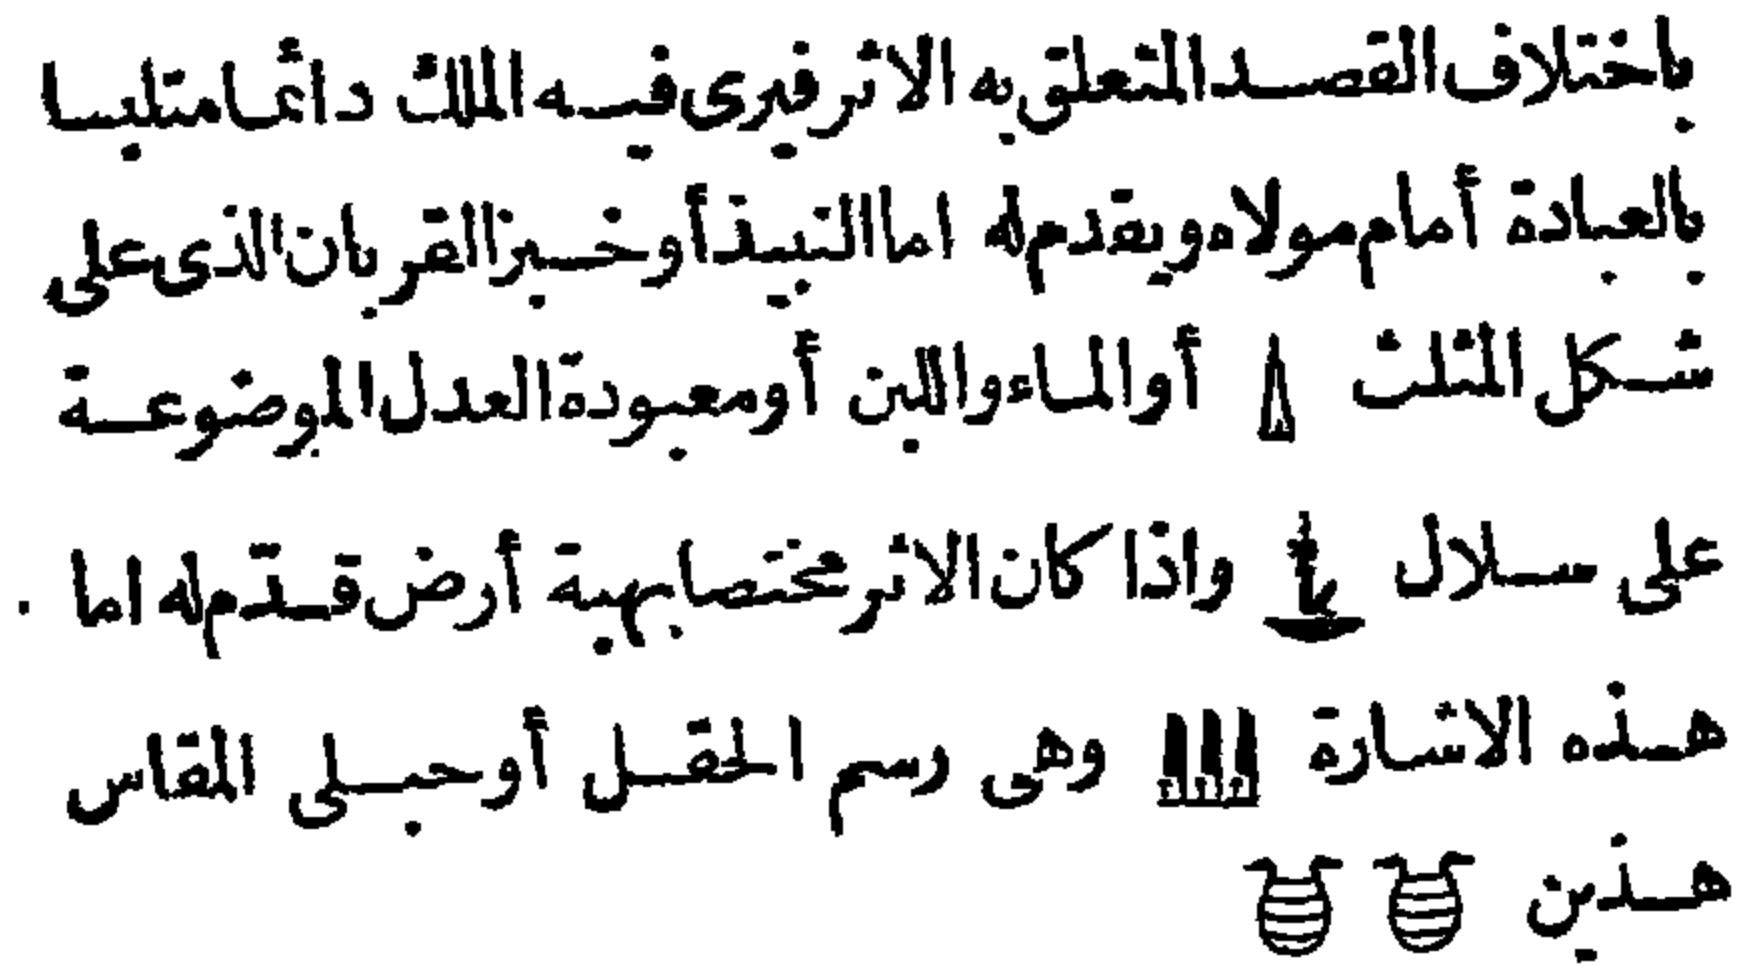 باختلاف القصد المتعلق به الاثر فيرى فيه الملك دائما متلبسا
بالعبادة أمام مولاه ويقدم له اما النبيذ أو خبز القربان الذى على
شكل المثلث أو الماء واللبن أو معبودة العدل الموضوعة
على سلال واذا كان الاثر مختصا بهبة أرض قدّم له اما
هذه الاشارة وهى رسم الحقل أو حبلى المقاس
هذين